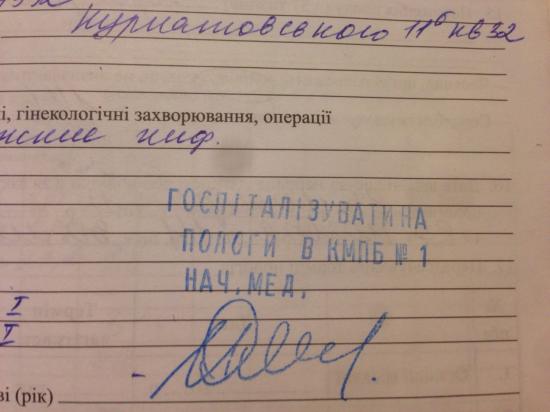 Курнатовського 11б кв 32
і, гінекологічні захворювання, операції
ГОСПІТАЛІЗУВАТИ НА
ПОЛОГИ В КМПБ № 1
НАЧ. МЕД.
I
I
ві (рік)